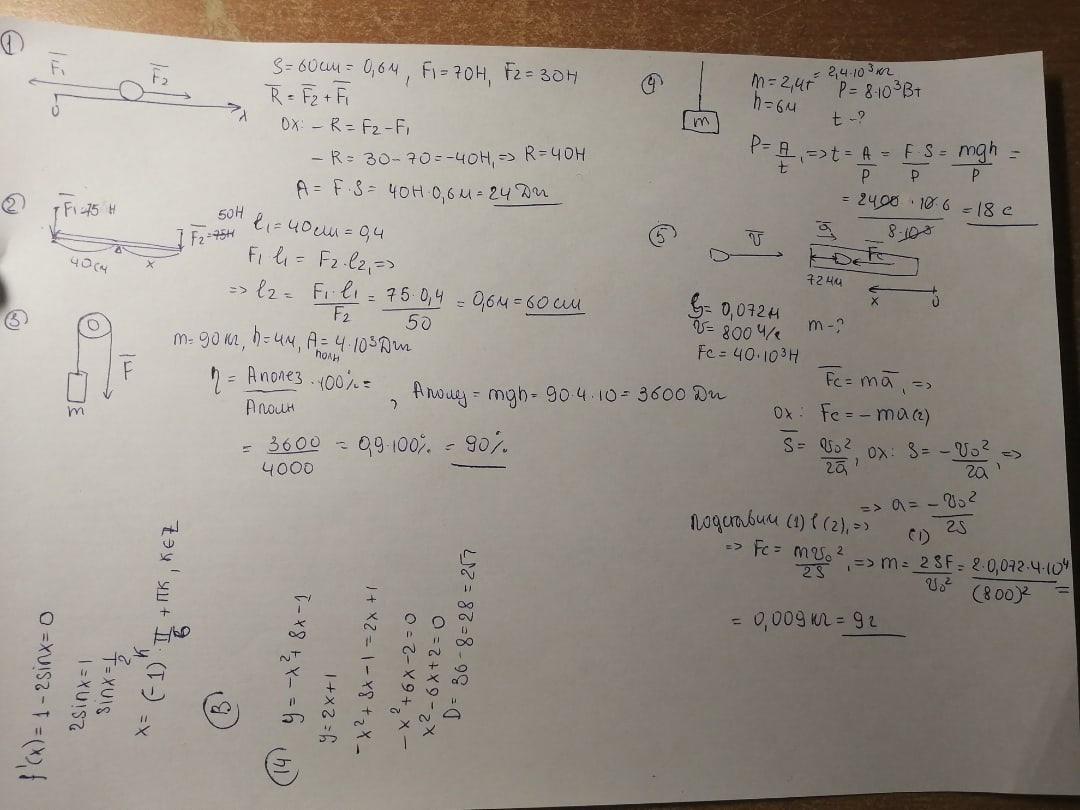 1
F₁
F₂
0
x
S=60см=0,6м, F₁=70Н, F₂=30Н
R = F₂+F₁
ОХ: -R = F₂-F₁
-R = 30-70=-40Н,=> R=40Н
A = F·S= 40Н·0,6м=24Дж
2
F₁=75 Н
50Н
F₂=75Н
40см
x
l₁=40см=0,4
F₁·l₁ = F₂·l₂,=>
=> l₂ = F₁·l₁/F₂ = 75·0,4/50 = 0,6м=60см
3
F
m
m=90кг, h=4м, Aполн=4·10³Дж
η = Aполез/Aполн ·100%=
, Aполу=mgh=90·4·10=3600 Дж
= 3600/4000 = 0,9·100% = 90%
4
m
m=2,4т=2,4·10³кг
P=8·10³Вт
h=6м
t-?
P=A/t,=>t=A/P=F·S/P=mgh/P=
= 2400·10·6/8·10³ =18 с
5
v
a
Fc
72мм
x
0
S=0,072м
v=800м/с
m-?
Fc=40·10³Н
Fc=ma,=>
ох: Fc=-ma(2)
S=v₀²/2a, ох: S=-v₀²/2a,=>
=> a=-v₀²/2S (1)
подставим (1) в (2),=>
=> Fc=mv₀²/2S,=>m=2SF/v₀²=2·0,072·4·10⁴/(800)²=
= 0,009кг=9г
f'(x)=1-2sinx=0
2sinx=1
sinx=1/2
x=(-1)ᴷ·π/6+πк, к∈Z
В
14
y=-x²+8x-1
y=2x+1
-x²+8x-1=2x+1
-x²+6x-2=0
x²-6x+2=0
D=36-8=28=2√7